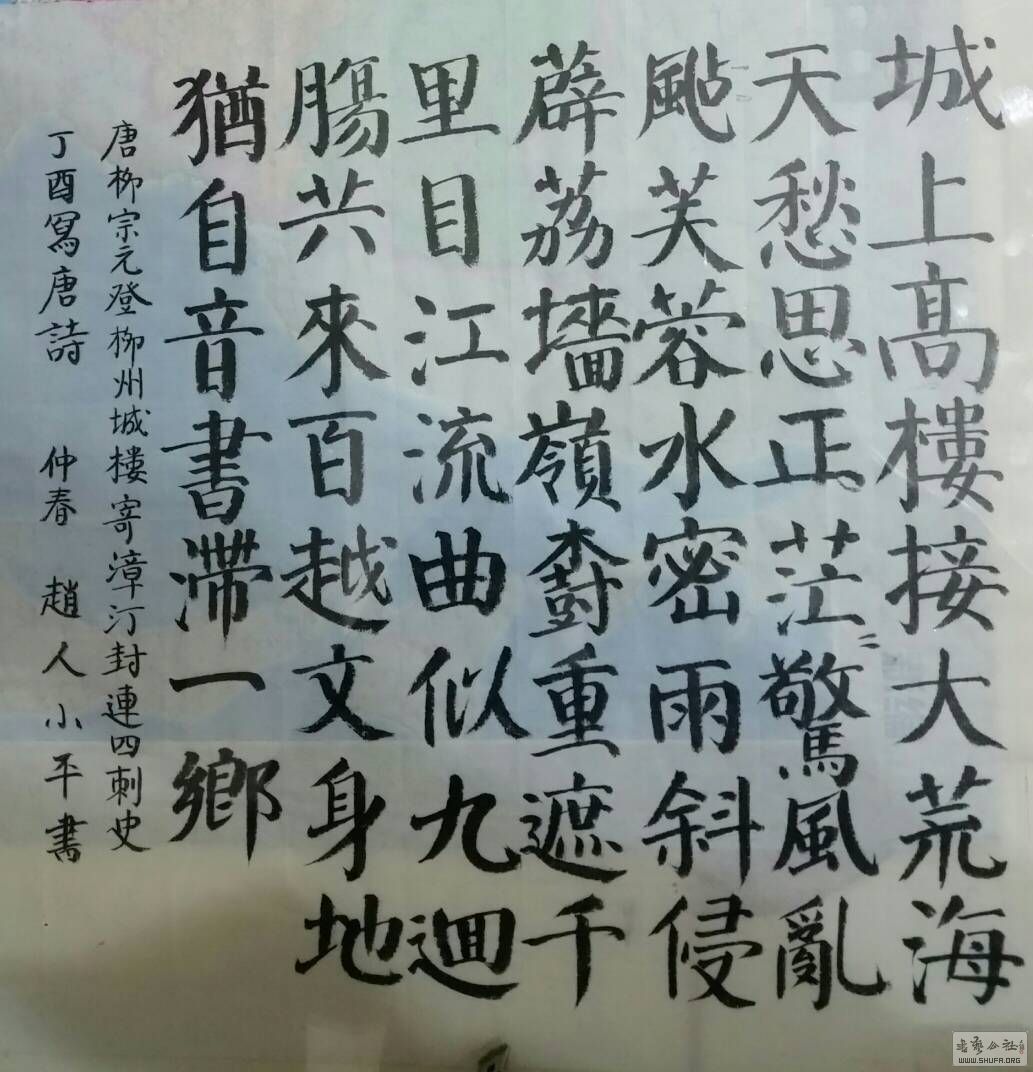 城上髙樓接大荒海
天愁思正茫〻驚風亂
颭芙蓉水密雨斜侵
薜荔墻嶺樹重遮千
里目江流曲似九迴
腸共來百越文身地
猶自音書滯一鄉
唐柳宗元登柳州城樓寄漳汀封連四刺史
丁酉寫唐詩 仲春 趙人小平書
書藝公社
WWW.SHUFA.ORG